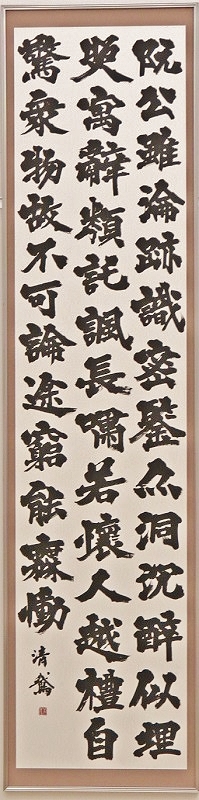 阮公雖淪跡識密鑒亦洞沉醉似埋
照寓辭類託諷長嘯若懷人越禮自
驚衆物故不可論途窮能無慟
清鵞